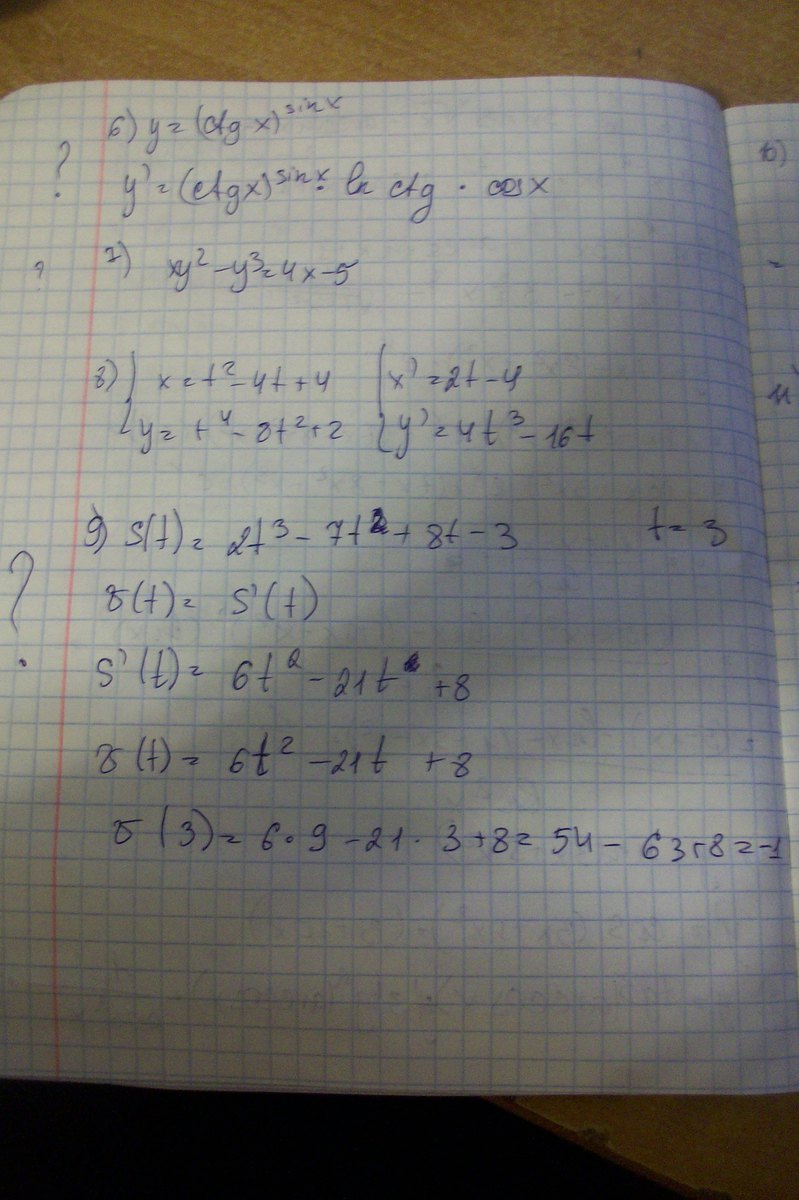 6) y = (ctg x)^sin x
? y' = (ctgx)^sin x · ln ctg · cos x
? 7) xy² - y³ = 4x - 5
8) { x = t² - 4t + 4 { x' = 2t - 4
y = t⁴ - 8t² + 2 y' = 4t³ - 16t
9) S(t) = 2t³ - 7t² + 8t - 3 t = 3
? v(t) = S'(t)
S'(t) = 6t² - 21t + 8
v(t) = 6t² - 21t + 8
v(3) = 6·9 - 21·3 + 8 = 54 - 63 + 8 = -1
10)
=